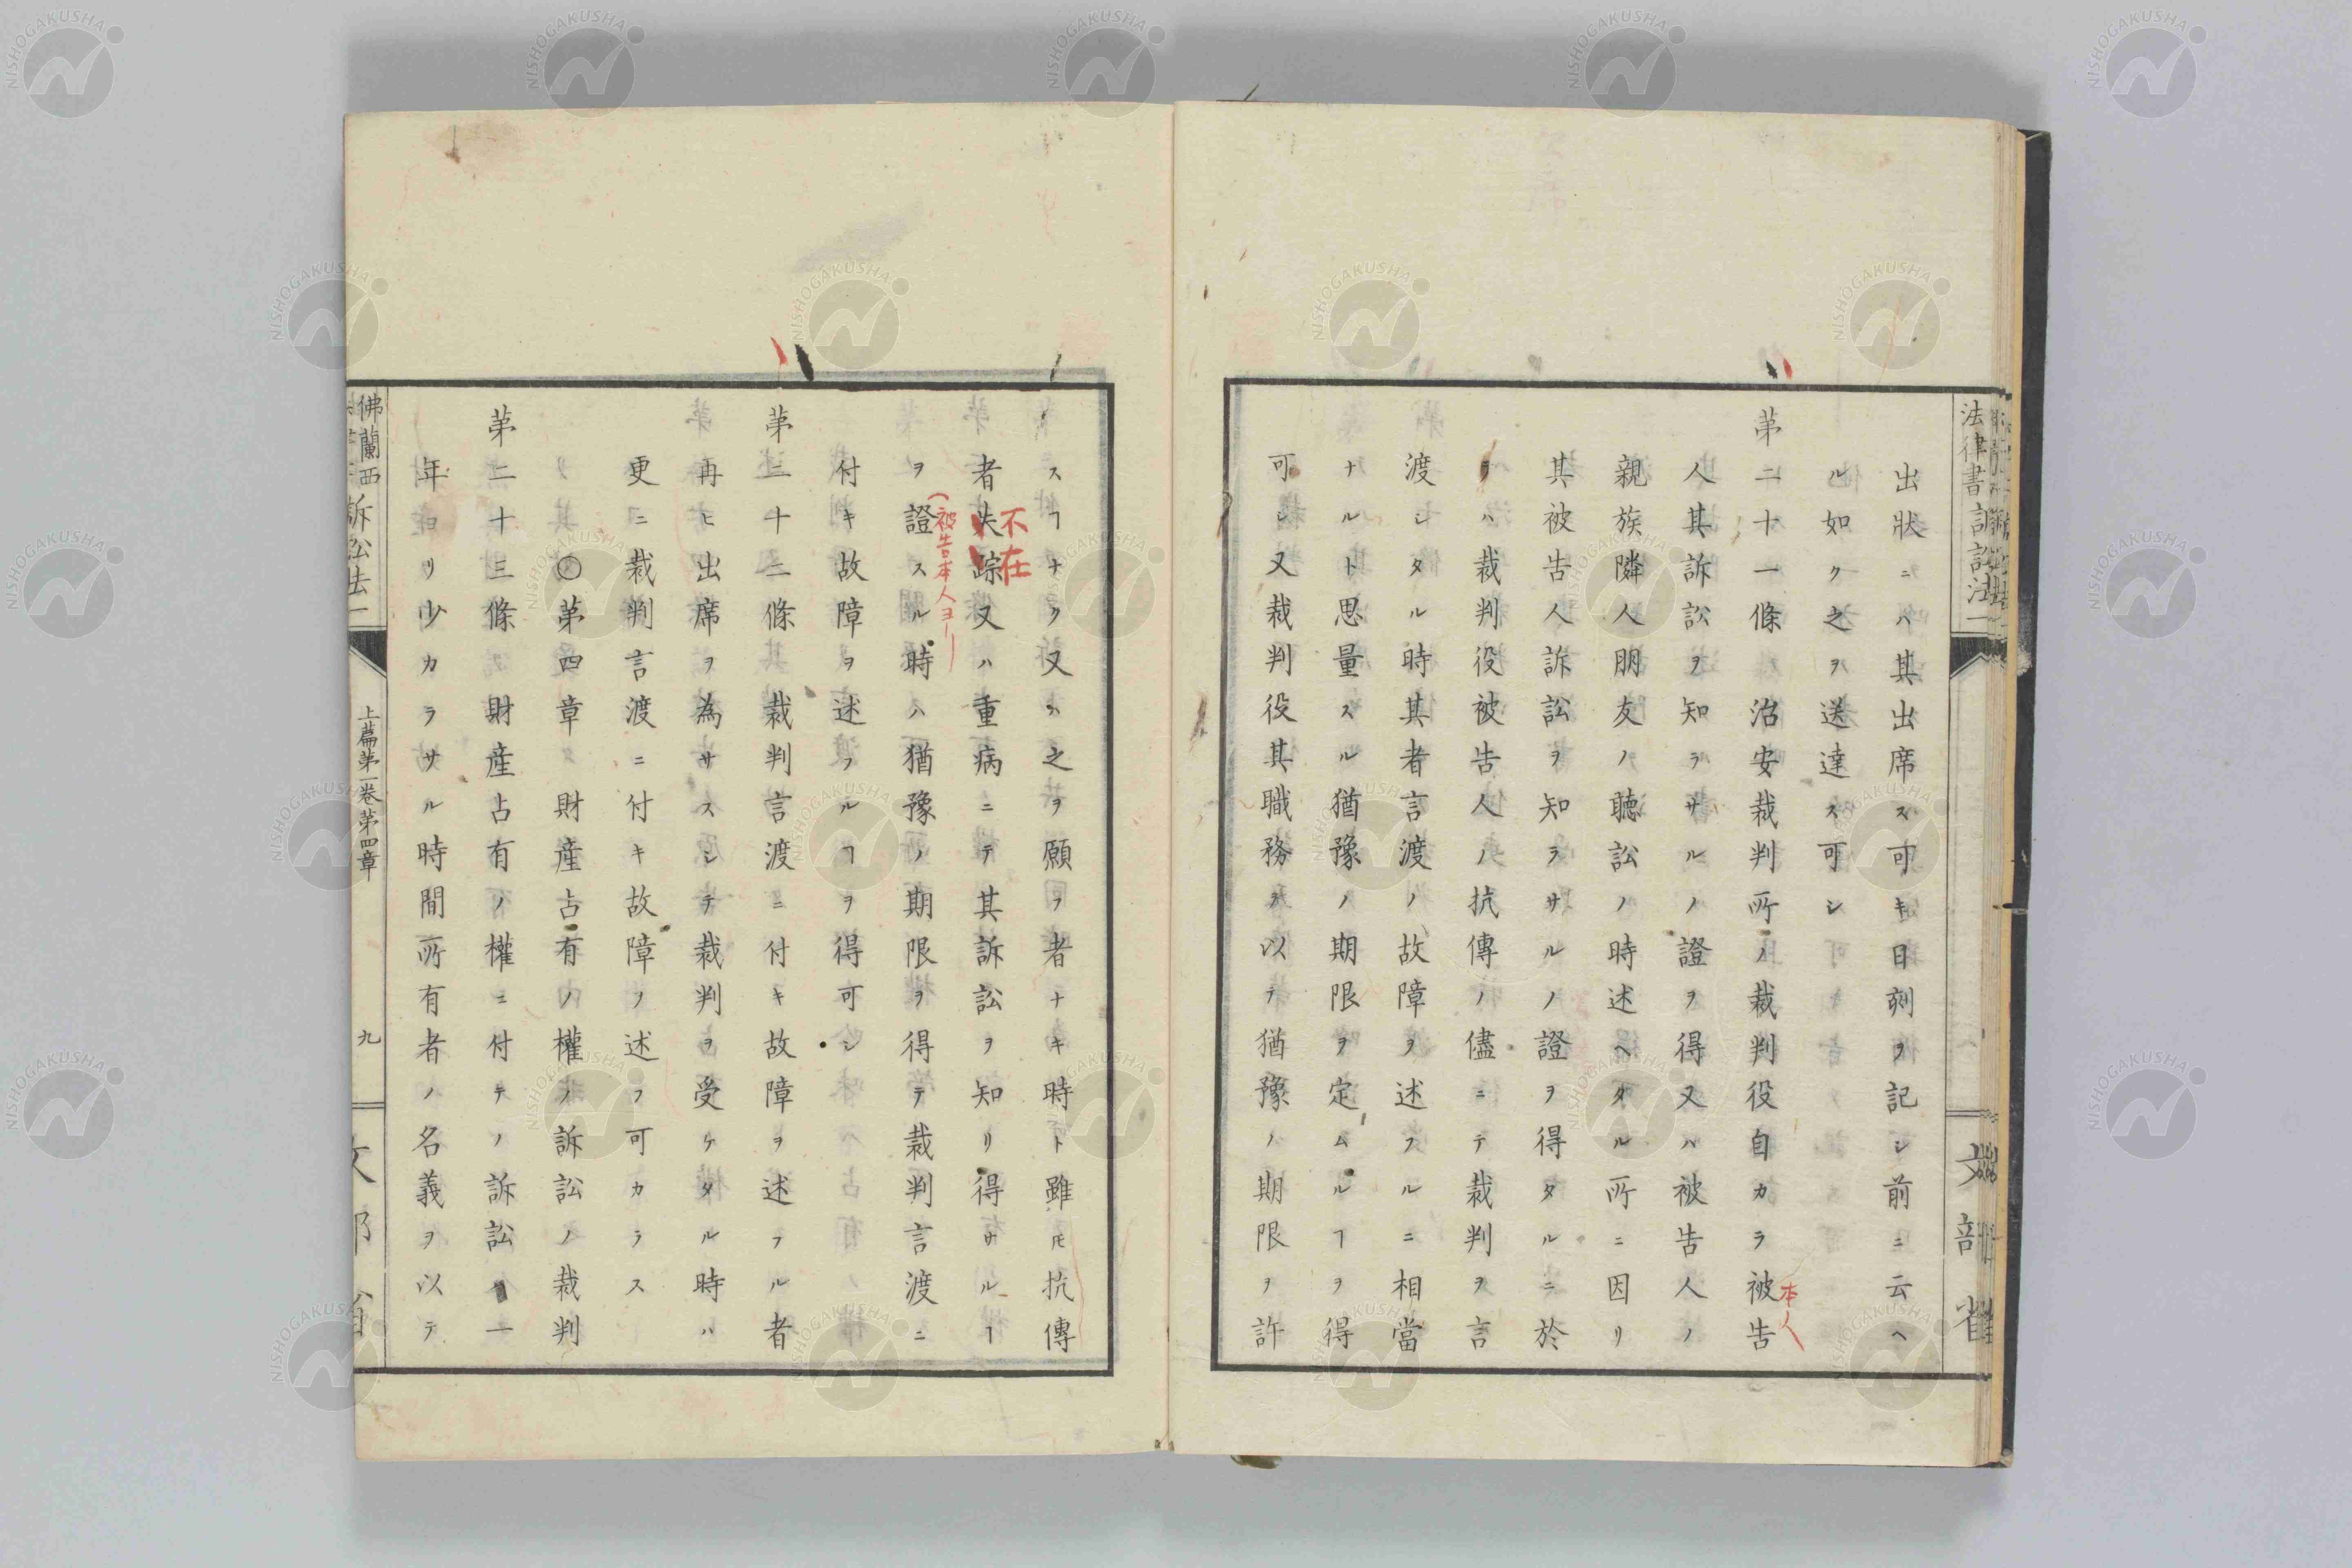 出狀ニハ其出席ス可キ日刻ヲ記シ前ニ云ヘ
ル如ク之ヲ送達ス可シ
第二十一條 治安裁判所ノ裁判役自カラ被告
本人
人其訴訟ヲ知ラサルノ證ヲ得又ハ被告人ノ
親族隣人朋友ノ聽訟ノ時述ヘタル所ニ因リ
其被告人訴訟ヲ知ラサルノ證ヲ得タルニ於
テハ裁判役被告人ノ抗傳ノ儘ニテ裁判ヲ言
渡シタル時其者言渡ノ故障ヲ述フルニ相當
ナルト思量スル猶豫ノ期限ヲ定ムルヿヲ得
可シ又裁判役其職務ヲ以テ猶豫ノ期限ヲ許
スヿナク又ハ之ヲ願フ者ナキ時ト雖𪜈抗傳
者失踪又ハ重病ニテ其訴訟ヲ知リ得サルヿ
不在
ヲ證スル時ハ猶豫ノ期限ヲ得テ裁判言渡ニ
(被告本人ヨリ
付キ故障ヲ述フルヿヲ得可シ
第二十二條 裁判言渡ニ付キ故障ヲ述フル者
再ヒ出席ヲ為サスシテ裁判ヲ受ケタル時ハ
更ニ裁判言渡ニ付キ故障ノ述フ可カラス
○第四章 財產占有ノ權ノ訴訟ノ裁判
第二十三條 財產占有ノ權ニ付テノ訴訟ハ一
年ヨリ少カラサル時間所有者ノ名義ヲ以テ
佛蘭西訴訟法一
上篇第一卷第四章
九
文部省